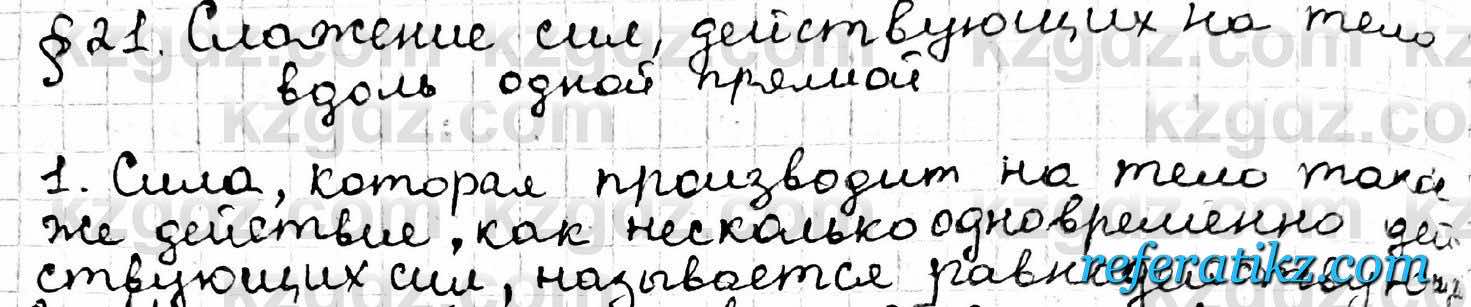 §21. Сложение сил, действующих на тело
вдоль одной прямой
1. Сила, которая производит на тело
же действие, как несколько одновременно дей
ствующих сил, называется
referatikz.com